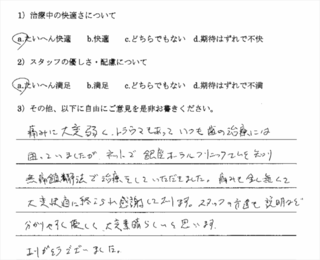 1）治療中の快適さについて
a.たいへん快適 b.快適 c.どちらでもない d.期待はずれで不快
2）スタッフの優しさ・配慮について
a.たいへん満足 b.満足 c.どちらでもない d.期待はずれで不満
3）その他、以下に自由にご意見を是非お書きください。
痛みに大変弱く、トラウマもあって いつも歯の治療には
困っていましたが ネットで 銀座 クリニック を知り
無痛 法で治療をしていただきました。痛みも全く無くて
大変快適に終えられ感謝しております。スタッフの方達も 説明など
分かりやすく優しく 大変素晴らしいと思います。
ありがとうございました。